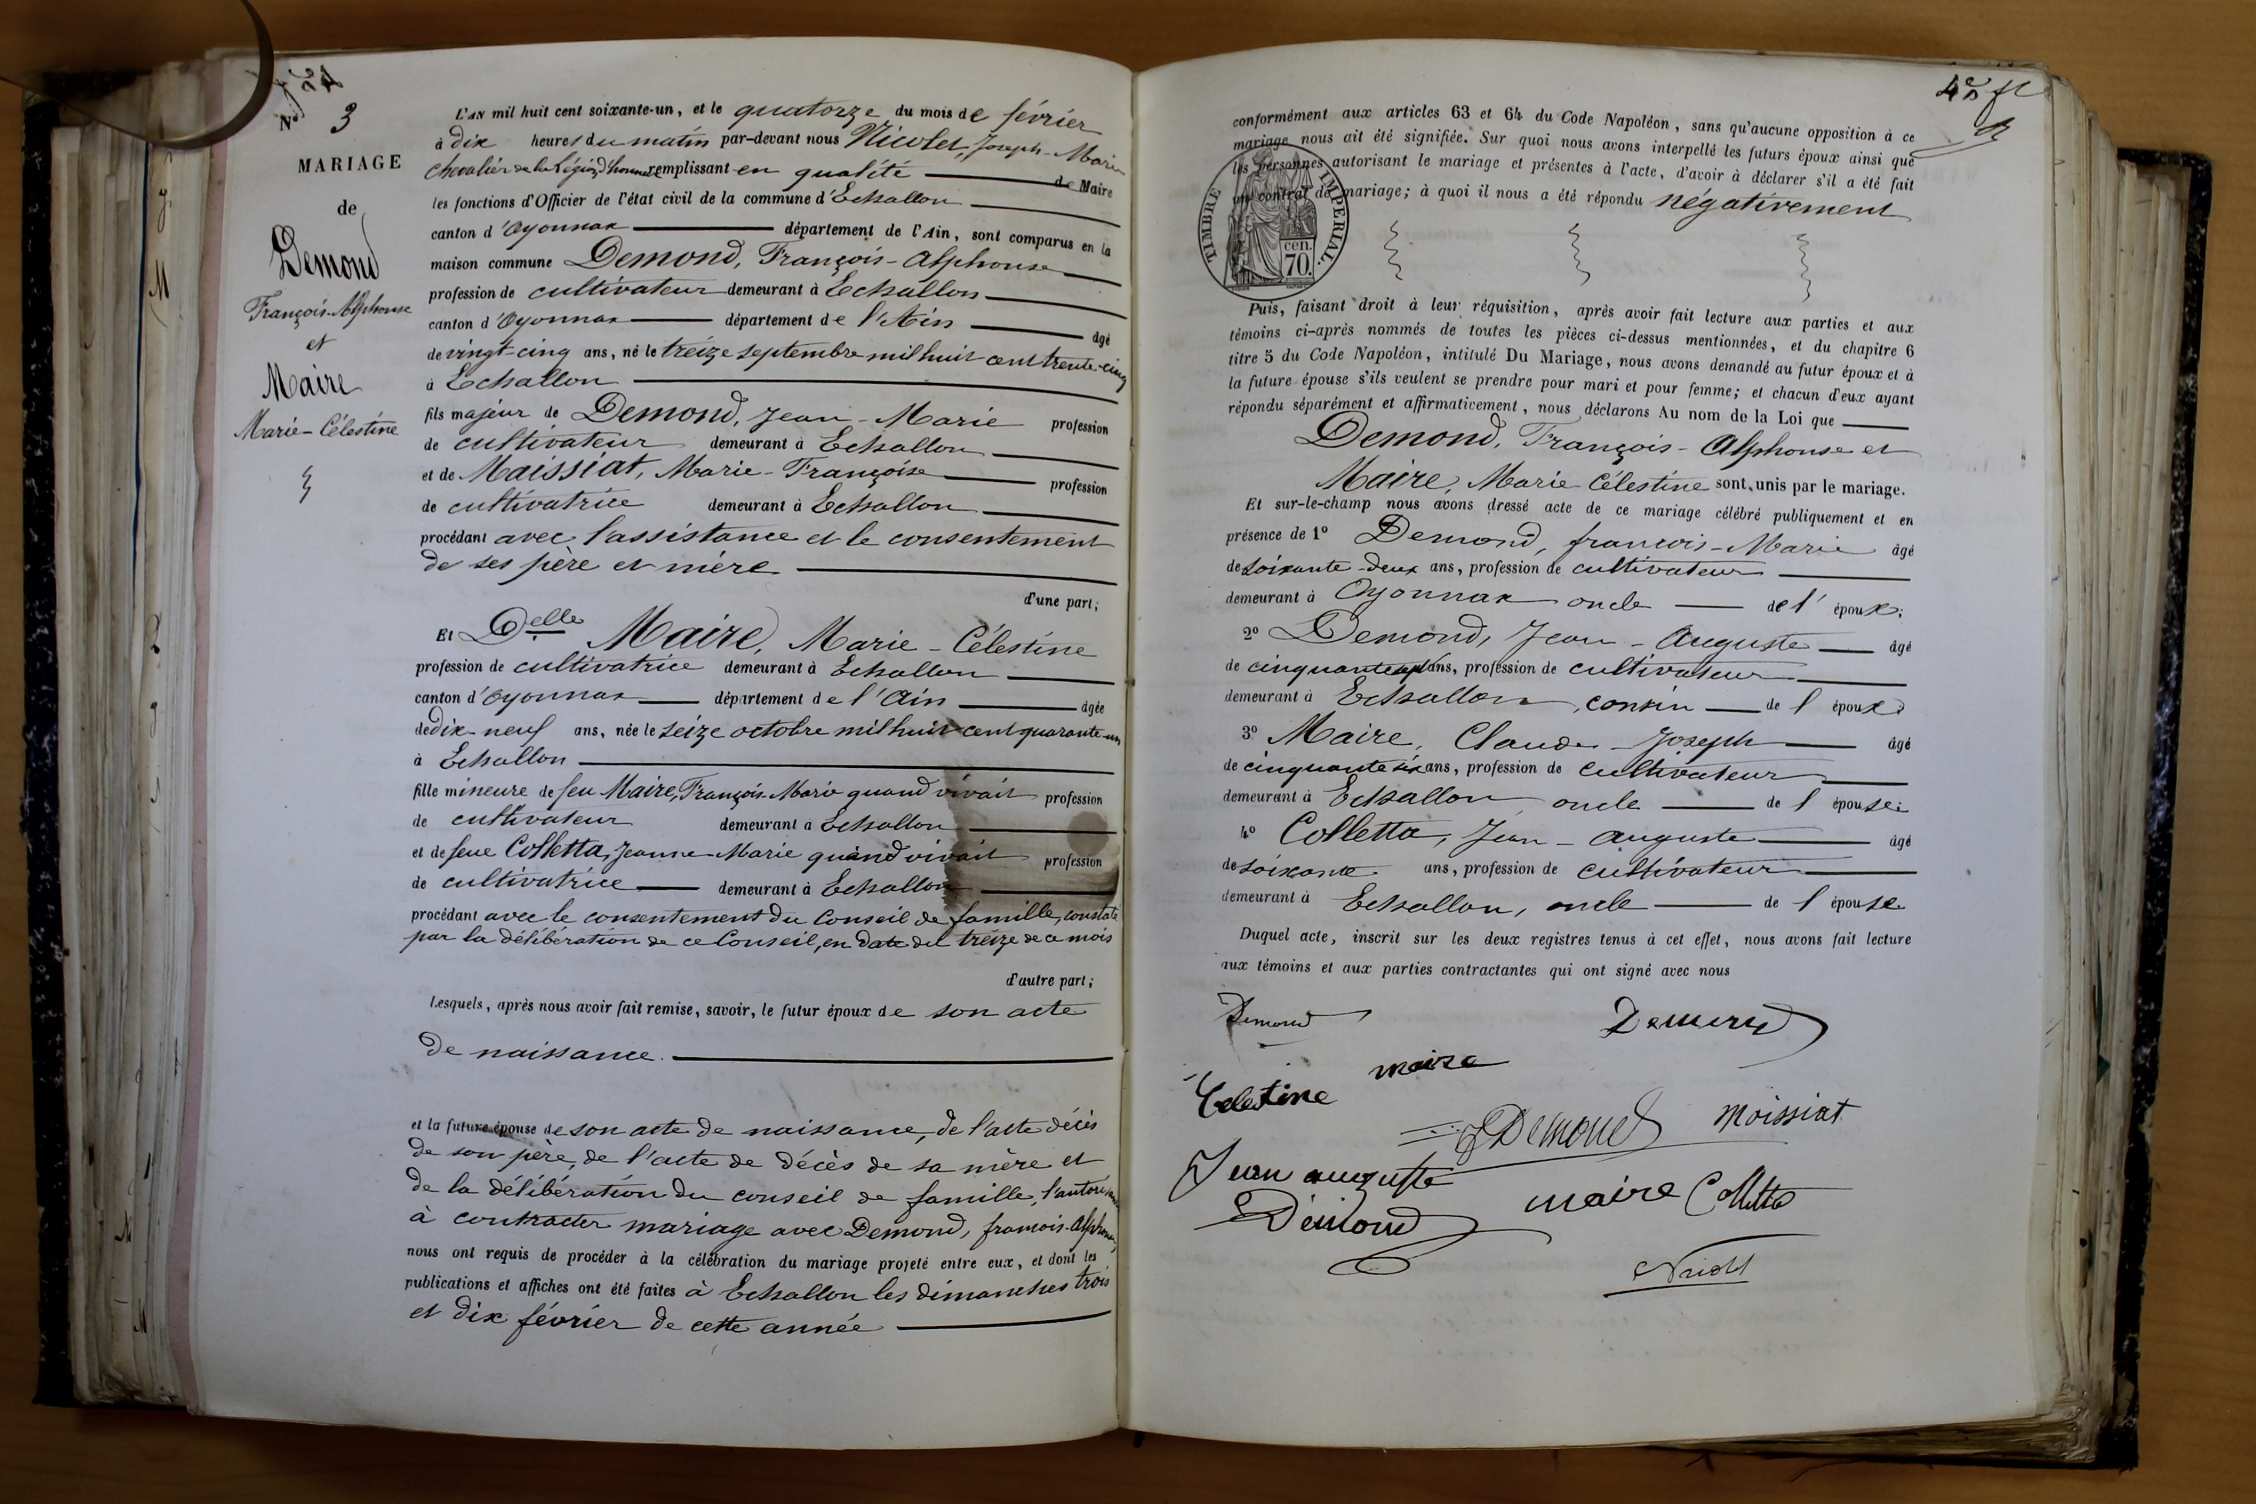 N° 3
MARIAGE
de
Demond
François-Alphonse
et
Maire
Marie-Célestine
L'AN mil huit cent soixante-un, et le quatorze du mois de février
à dix heures du matin par-devant nous Nicolet, Joseph-Marie
chevalier de la Légion d'honneur remplissant en qualité de Maire
les fonctions d'Officier de l'état civil de la commune d'Echallon
canton d'Oyonnax département de l'Ain, sont comparus en la
maison commune Demond, François-Alphonse
profession de cultivateur demeurant à Echallon
canton d'Oyonnax département de l'Ain âgé
de vingt-cinq ans, né le treize septembre mil huit cent trente-cinq
à Echallon
fils majeur de Demond, Jean-Marie profession
de cultivateur demeurant à Echallon
et de Maissiat, Marie-Françoise profession
de cultivatrice demeurant à Echallon
procédant avec l'assistance et le consentement
de ses père et mère
d'une part;
Et Delle Maire, Marie-Célestine
profession de cultivatrice demeurant à Echallon
canton d'Oyonnax département de l'Ain âgée
de dix-neuf ans, née le seize octobre mil huit cent quarante-un
à Echallon
fille mineure de feu Maire, François-Marie quand vivait profession
de cultivateur demeurant à Echallon
et de feue Colletta, Jeanne-Marie quand vivait profession
de cultivatrice demeurant à Echallon
procédant avec le consentement du Conseil de famille, constaté
par la délibération de ce Conseil, en date du treize de ce mois
d'autre part;
Lesquels, après nous avoir fait remise, savoir, le futur époux de son acte
de naissance.
et la future épouse de son acte de naissance, de l'acte décès
de son père, de l'acte de décès de sa mère et
de la délibération du conseil de famille, l'autorisant
à contracter mariage avec Demond, francois-Alphonse,
nous ont requis de procéder à la célébration du mariage projeté entre eux, et dont les
publications et affiches ont été faites à Echallon les dimanches trois
et dix février de cette année
conformément aux articles 63 et 64 du Code Napoléon, sans qu'aucune opposition à ce
mariage nous ait été signifiée. Sur quoi nous avons interpellé les futurs époux ainsi que
les personnes autorisant le mariage et présentes à l'acte, d'avoir à déclarer s'il a été fait
un contrat de mariage; à quoi il nous a été répondu négativement
TIMBRE IMPERIAL.
cen.
70.
Puis, faisant droit à leur réquisition, après avoir fait lecture aux parties et aux
témoins ci-après nommés de toutes les pièces ci-dessus mentionnées, et du chapitre 6
titre 5 du Code Napoléon, intitulé Du Mariage, nous avons demandé au futur époux et à
la future épouse s'ils veulent se prendre pour mari et pour femme; et chacun d'eux ayant
répondu séparément et affirmativement, nous déclarons Au nom de la Loi que
Demond, François-Alphonse et
Maire, Marie Célestine sont unis par le mariage.
Et sur-le-champ nous avons dressé acte de ce mariage célébré publiquement et en
présence de 1° Demond, francois-Marie âgé
de soixante-deux ans, profession de cultivateur
demeurant à Oyonnax oncle de l'époux;
2° Demond, Jean-Auguste âgé
de cinquante ans, profession de cultivateur
demeurant à Echallon, cousin de l époux
3° Maire, Claude-Joseph âgé
de cinquante six ans, profession de cultivateur
demeurant à Echallon oncle de l épouse.
4° Colletta, Jean-auguste âgé
de soixante ans, profession de cultivateur
demeurant à Echallon, oncle de l épouse
Duquel acte, inscrit sur les deux registres tenus à cet effet, nous avons fait lecture
aux témoins et aux parties contractantes qui ont signé avec nous
Demond
Demond
Celestine maire
Demond Moissiat
Jean auguste
Démond
maire Colletta
Nicolet